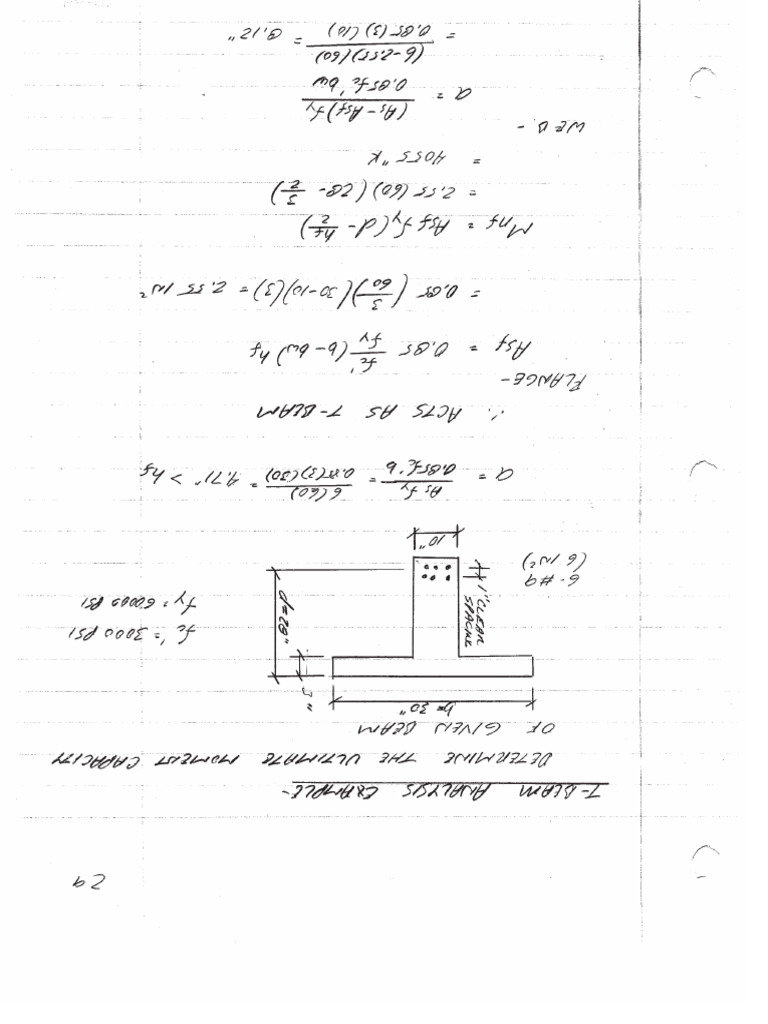 29
T-BEAM ANALYSIS EXAMPLE-
DETERMINE THE ULTIMATE MOMENT CAPACITY
OF GIVEN BEAM
b= 30"
3"
d=28"
1" CLEAR
SPACING
10"
6-#9
(6 IN²)
fc' = 3000 PSI
fy = 60000 PSI
a = As fy / 0.85fc' b = 6(60) / 0.85(3)(30) = 4.71" > hf
∴ ACTS AS T-BEAM
FLANGE-
Asf = 0.85 fc'/fy (b-bw) hf
= 0.85 (3/60)(30-10)(3) = 2.55 IN²
Mnf = Asf fy (d - hf/2)
= 2.55 (60) (28 - 3/2)
= 4055 "K
WEB-
a = (As-Asf)fy / 0.85fc' bw
= (6-2.55)(60) / 0.85(3)(10) = 8.12"